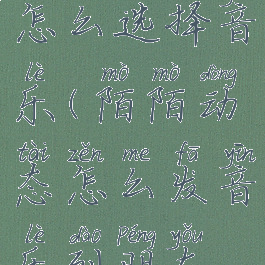 怎么选择音
lè mò mò dòng
乐(陌陌动
tài zěn me fā yīn
态怎么发音
lè dào péng yǒu
乐到朋友